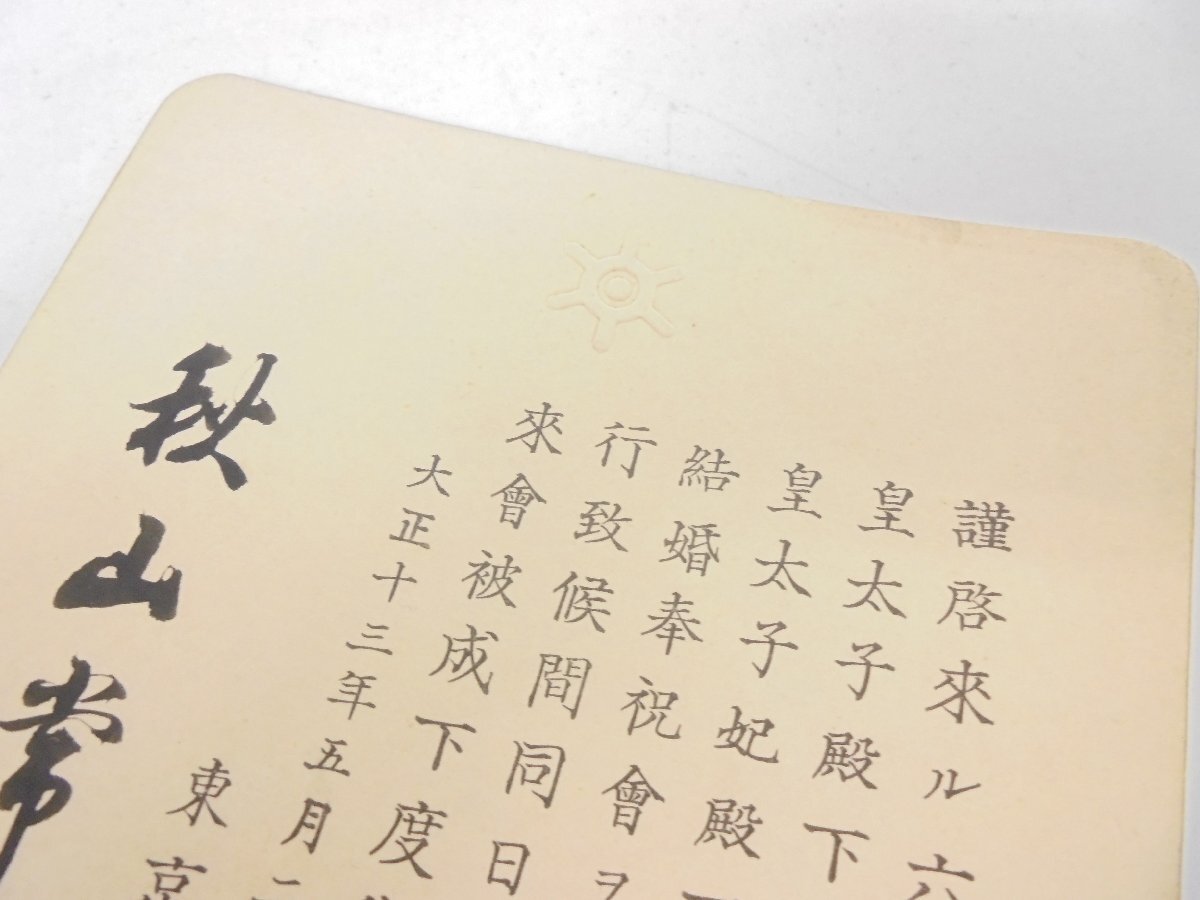 謹啓來ル六
皇太子殿下
皇太子妃殿
結婚奉祝會ヲ
行致候間同日
來會被成下度
大正十三年五月二
東京
秋山常